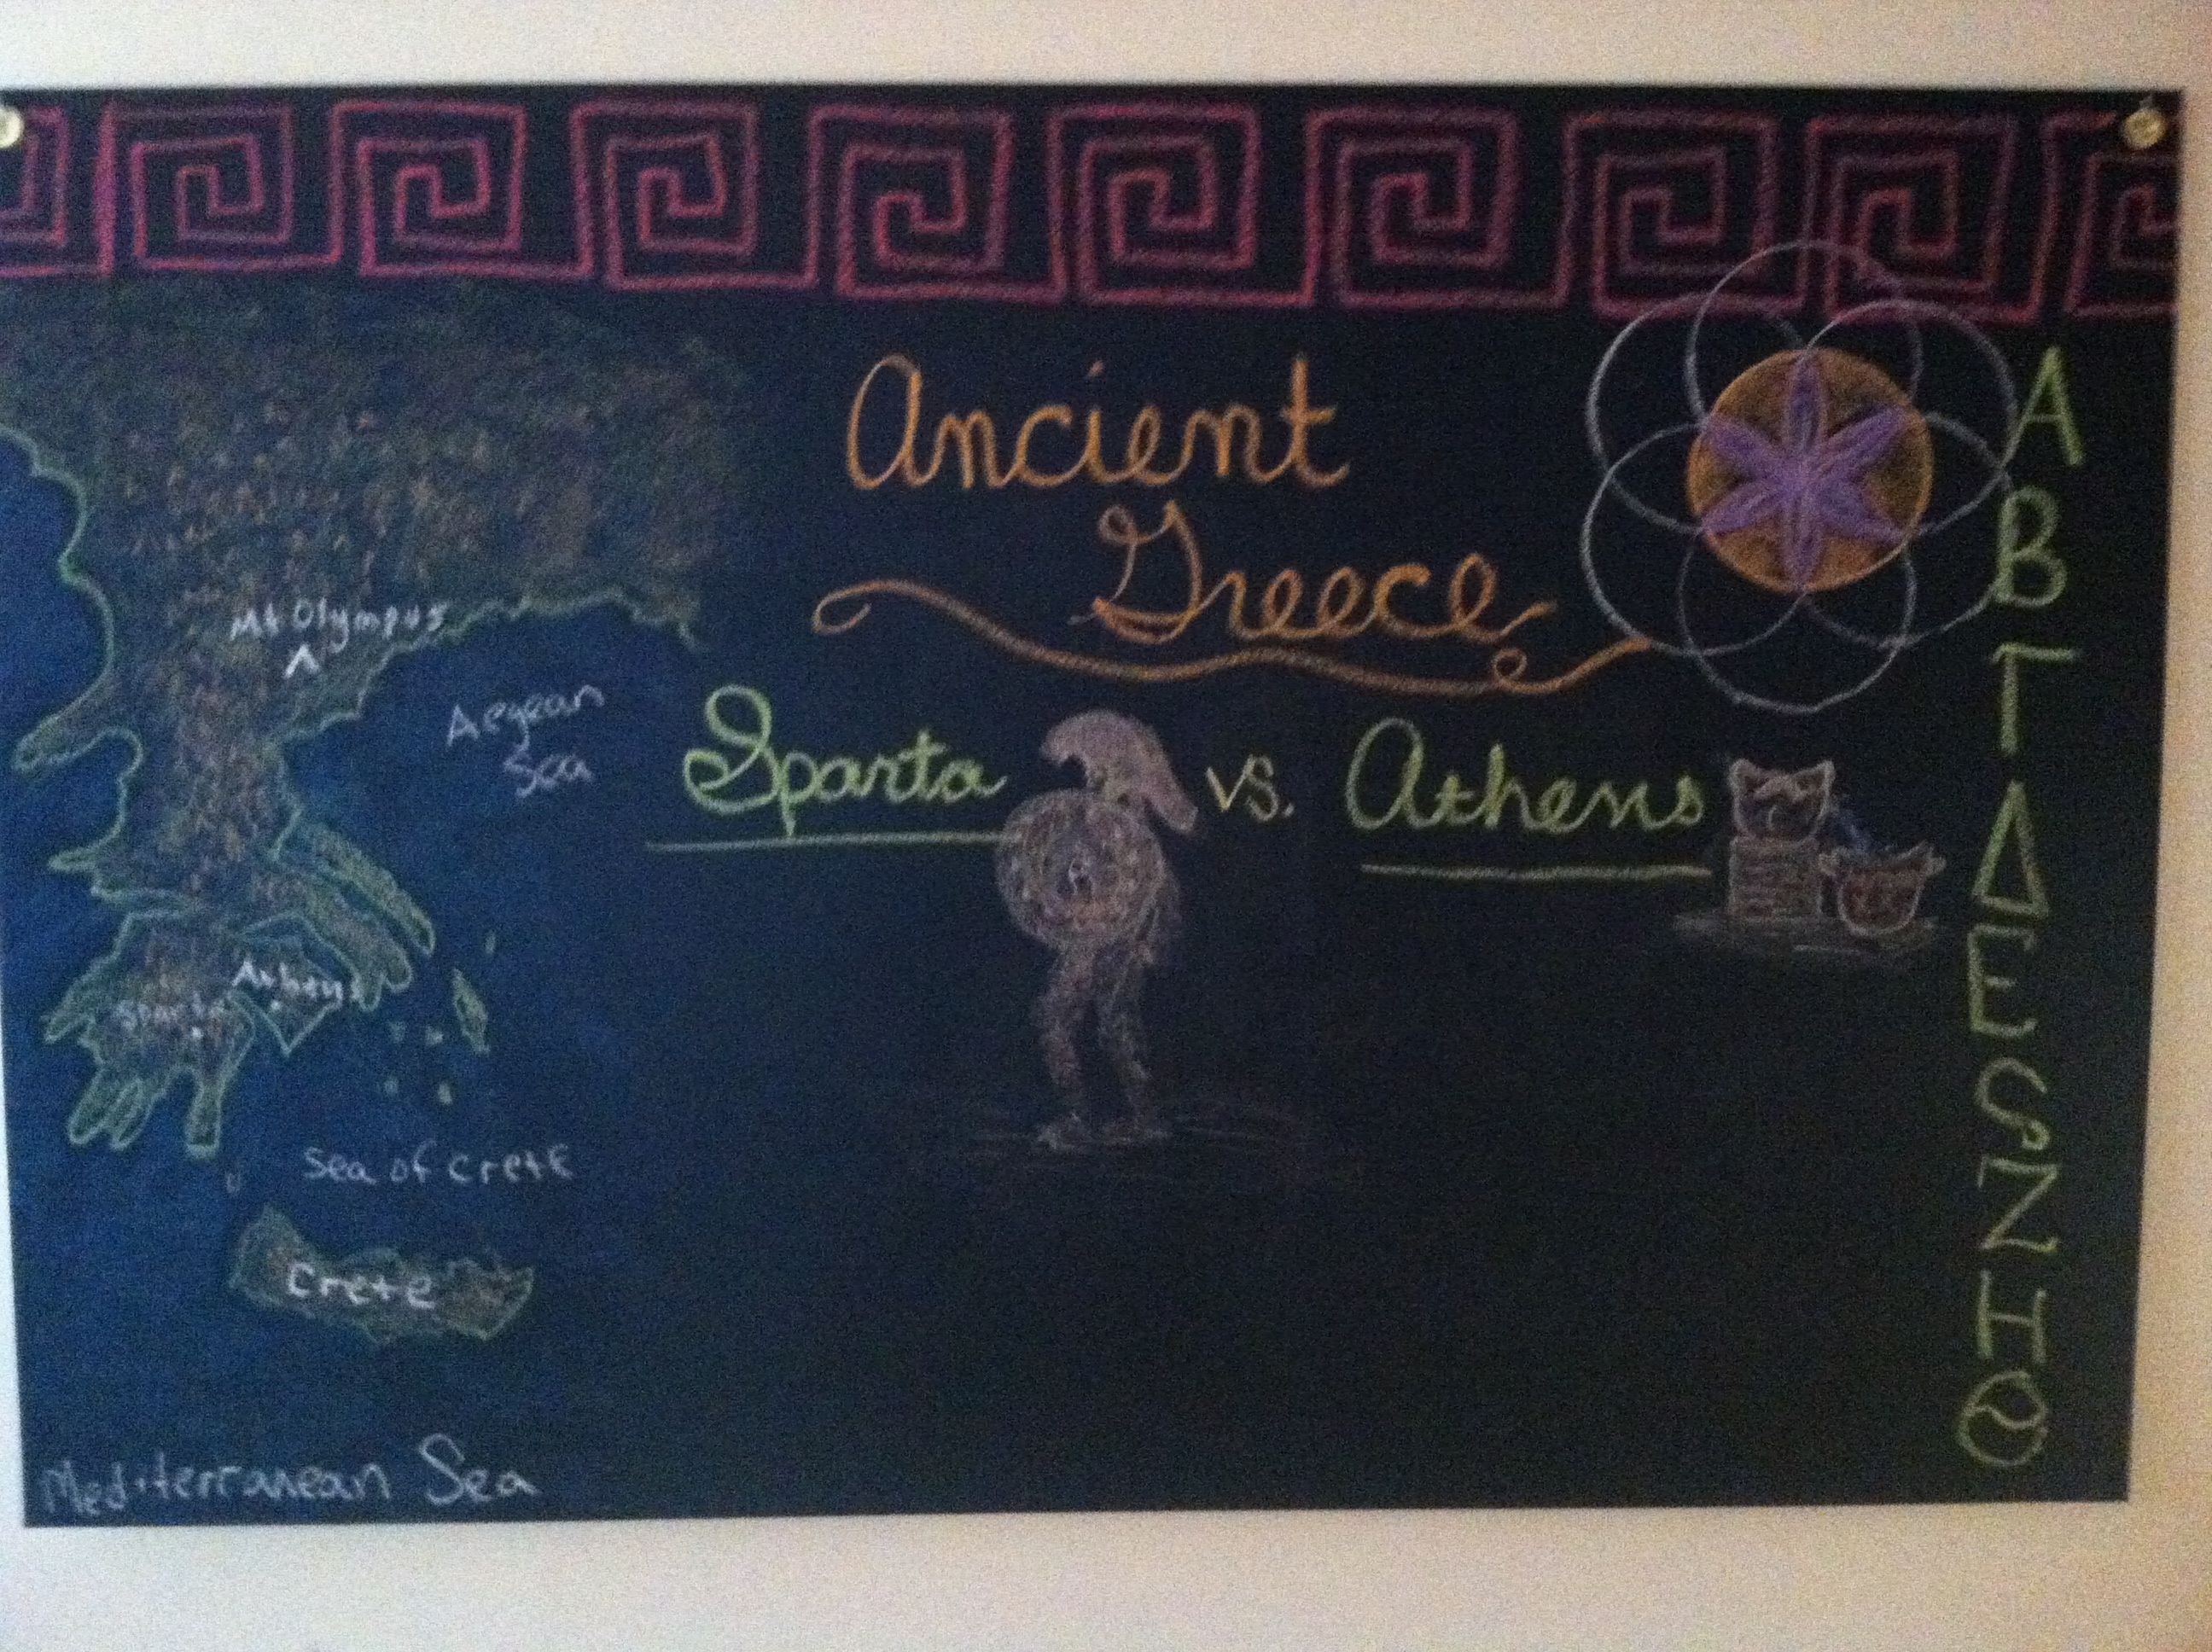 Ancient
Greece
Sparta vs. Athens
Mt Olympus
Aegean
Sea
Athens
Sparta
Sea of Crete
Crete
Mediterranean Sea
Α
Β
Γ
Δ
Ε
Ϛ
Ζ
Η